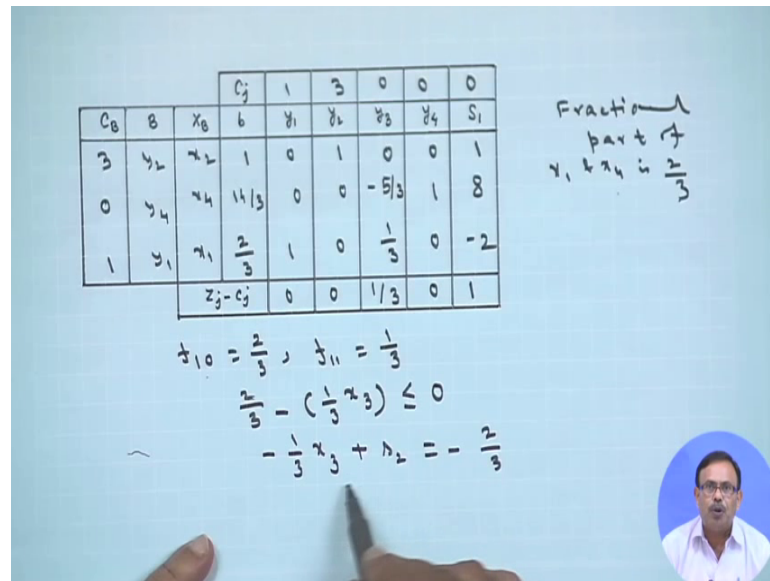 Cj 1 3 0 0 0
CB B XB b y1 y2 y3 y4 S1
3 y2 x2 1 0 1 0 0 1
0 y4 x4 14/3 0 0 -5/3 1 8
1 y1 x1 2/3 1 0 1/3 0 -2
Zj-Cj 0 0 1/3 0 1
Fractional
part of
x1 & x4 is 2/3
f10 = 2/3, f11 = 1/3
2/3 - (1/3 x3) ≤ 0
- 1/3 x3 + s2 = - 2/3